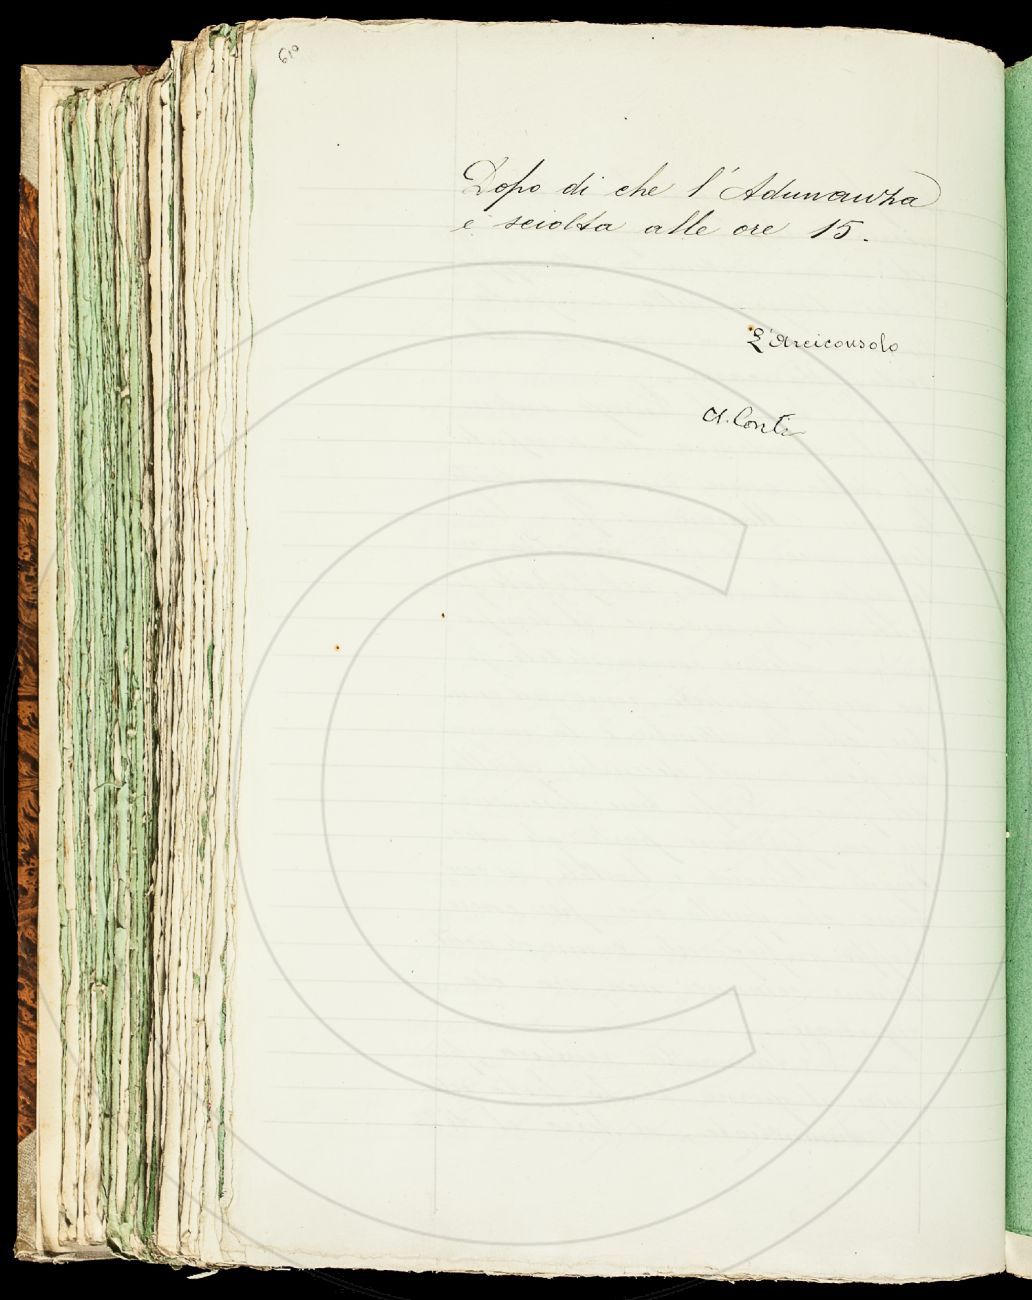 610
Dopo di che l'Adunanza
è sciolta alle ore 15.
L'Arciconsolo
A. Conti